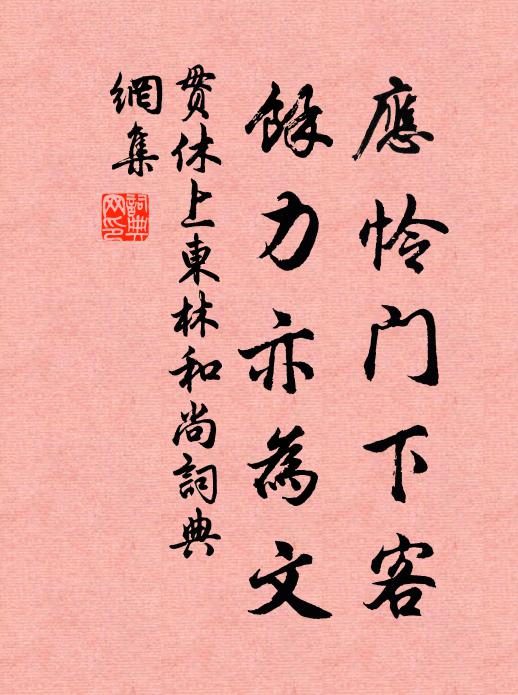 應怜门下客
餘力亦為文
贯休上東林和尚詞典
網集
詞典网印